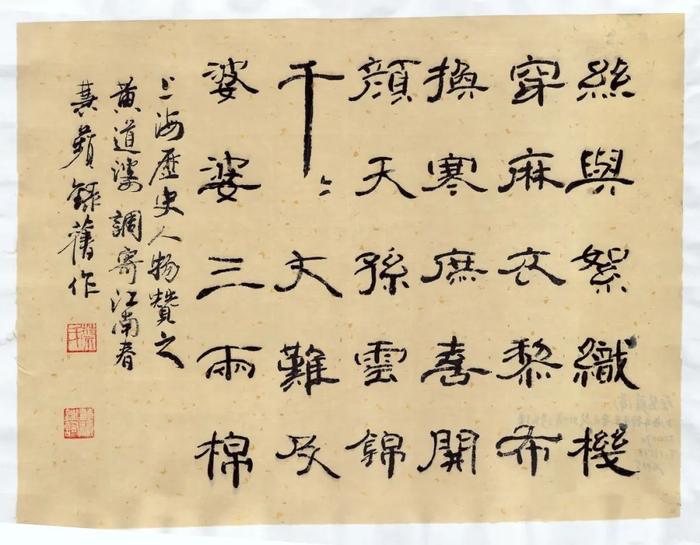 絲與絮織機
穿麻衣黎布
換寒庶喜開
顏天孫雲錦
千〻丈難及
婆婆三兩棉
上海歷史人物贊之
黃道婆 調寄江南春
蘋錄舊作